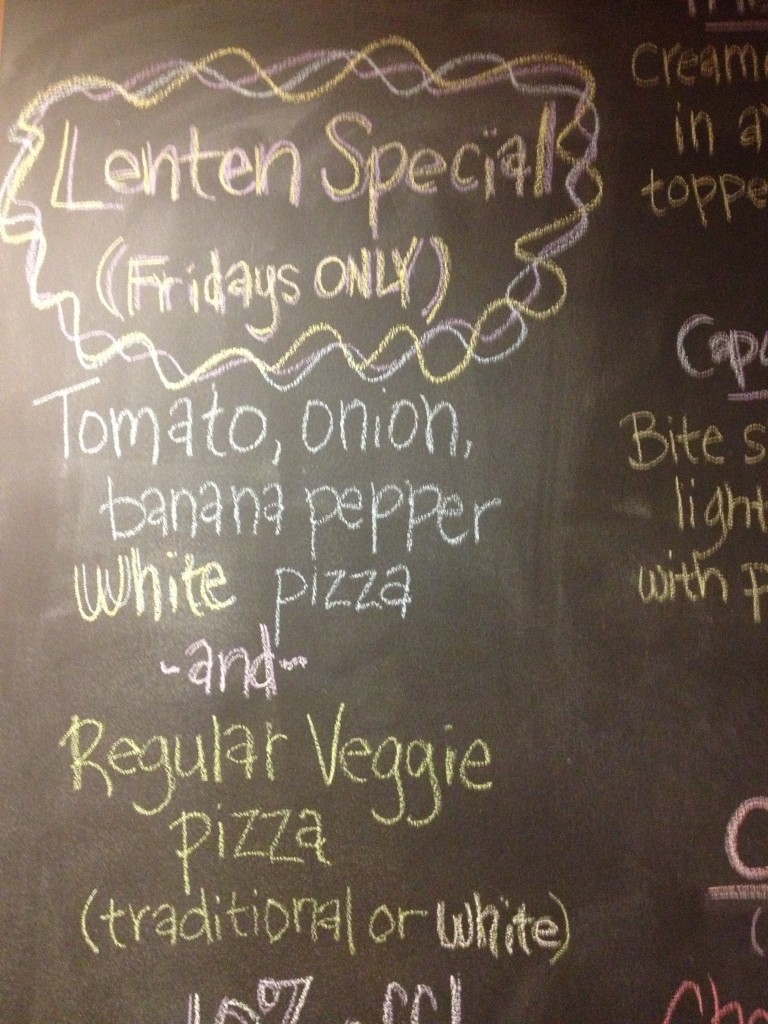 Lenten Special
(Fridays ONLY)
Tomato, onion,
banana pepper
White pizza
-and-
Regular Veggie
pizza
(traditional or white)
10% off!
in
toppe
Bite
light
with